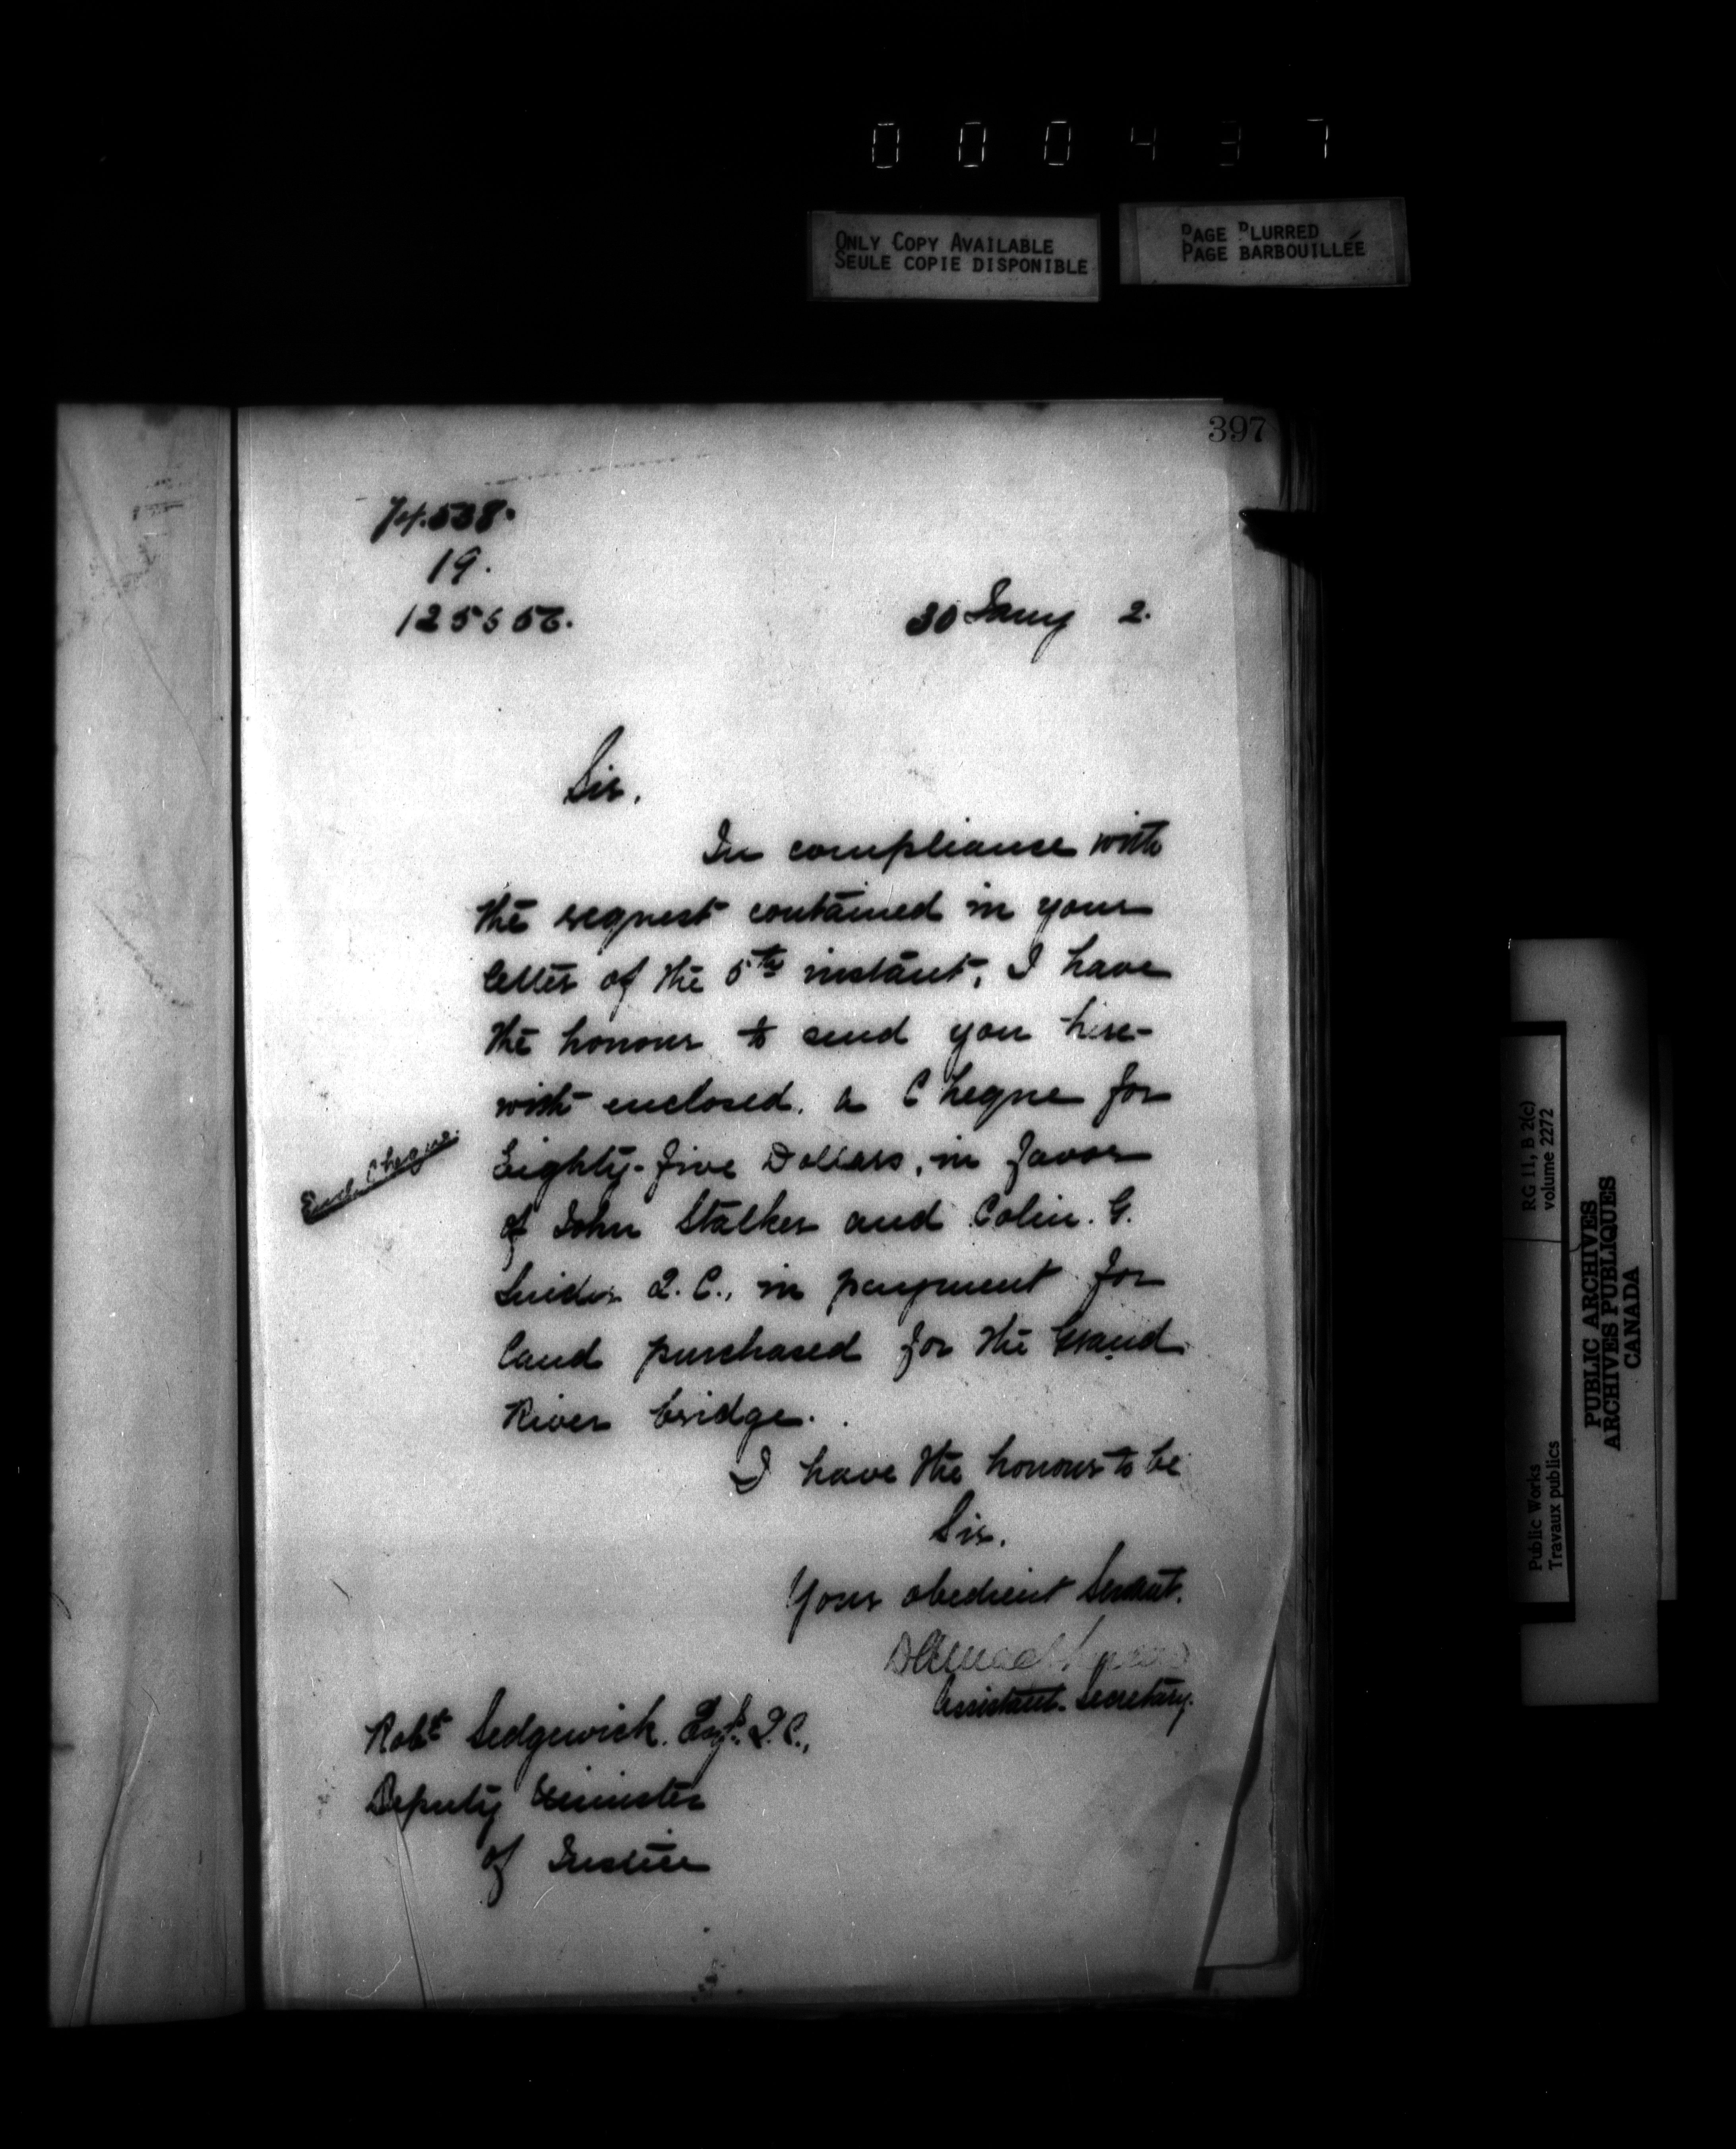 000437
ONLY COPY AVAILABLE
SEULE COPIE DISPONIBLE
PAGE BLURRED
PAGE BARBOUILLÉE
397
74.538.
19.
30 Jany 2.
Sir,
In compliance with
the request contained in your
letter of the 5th instant, I have
the honour to send you here-
with enclosed, a Cheque for
Encl. Cheque.
Eighty-five Dollars, in favor
of John Stalker and Colin. G.
Snider Q.C., in payment for
land purchased for the Grand
River bridge.
I have the honour to be
Sir,
Your obedient Servant.
Assistant Secretary.
Robt Sedgewick. Esq. Q.C.,
Deputy Minister
of Justice
RG 11, B 2(c)
volume 2272
Public Works
Travaux publics
PUBLIC ARCHIVES
ARCHIVES PUBLIQUES
CANADA